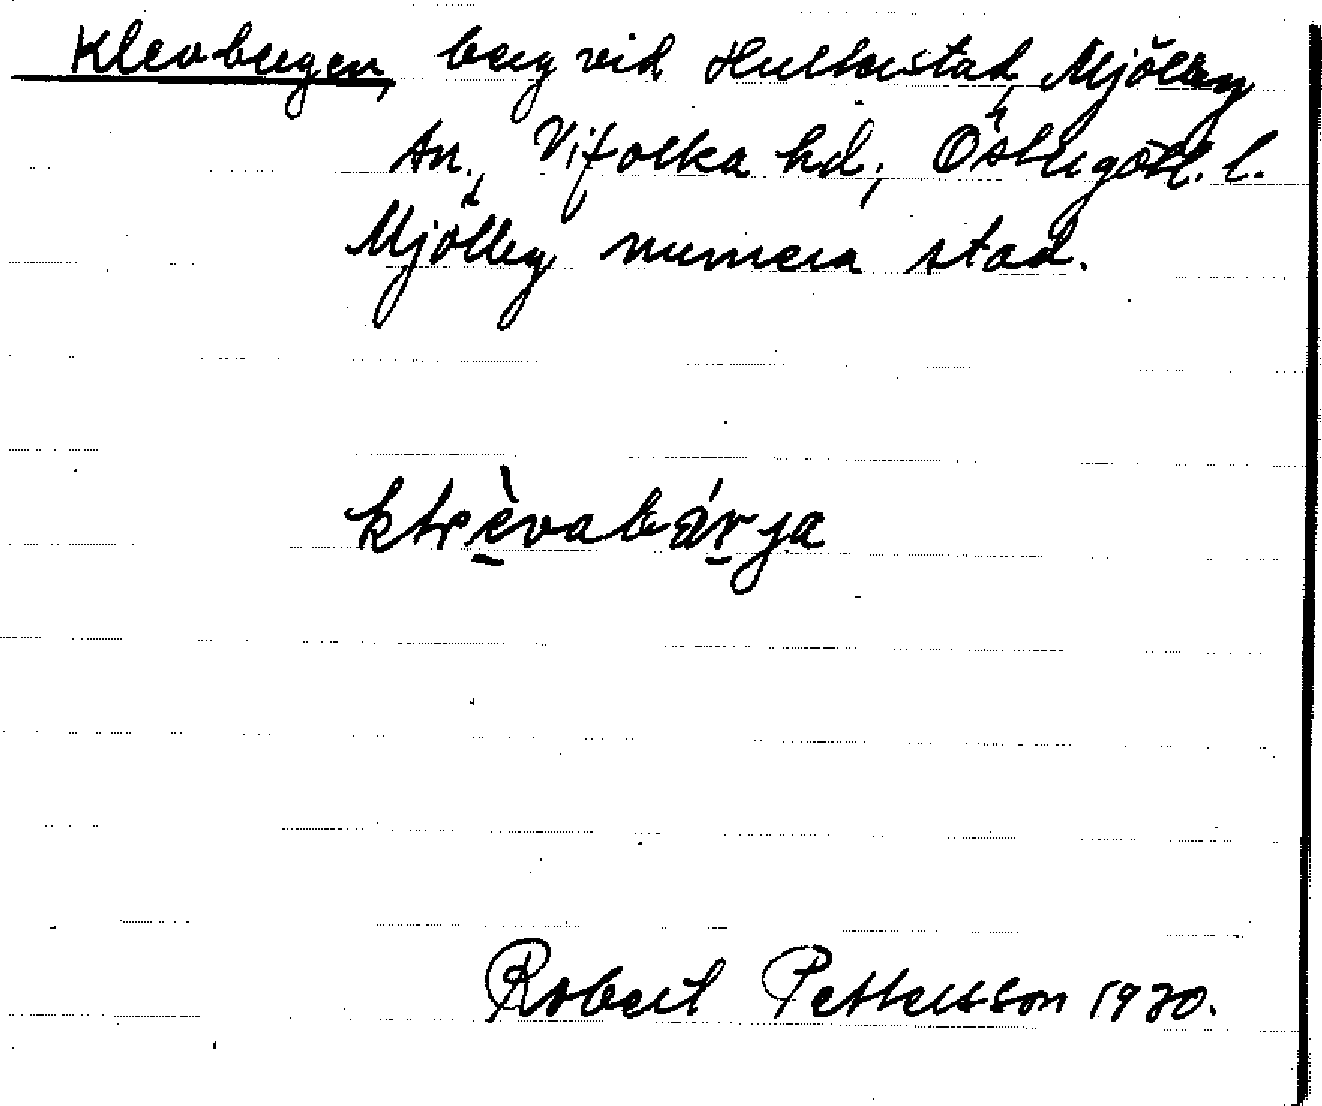 Klevbergen, berg vid Hulterstad, Mjölby
sn., Vifolka hd, Östergötl. l.
Mjölby numera stad.
klèvabǽrja
Robert Pettersson 1920.